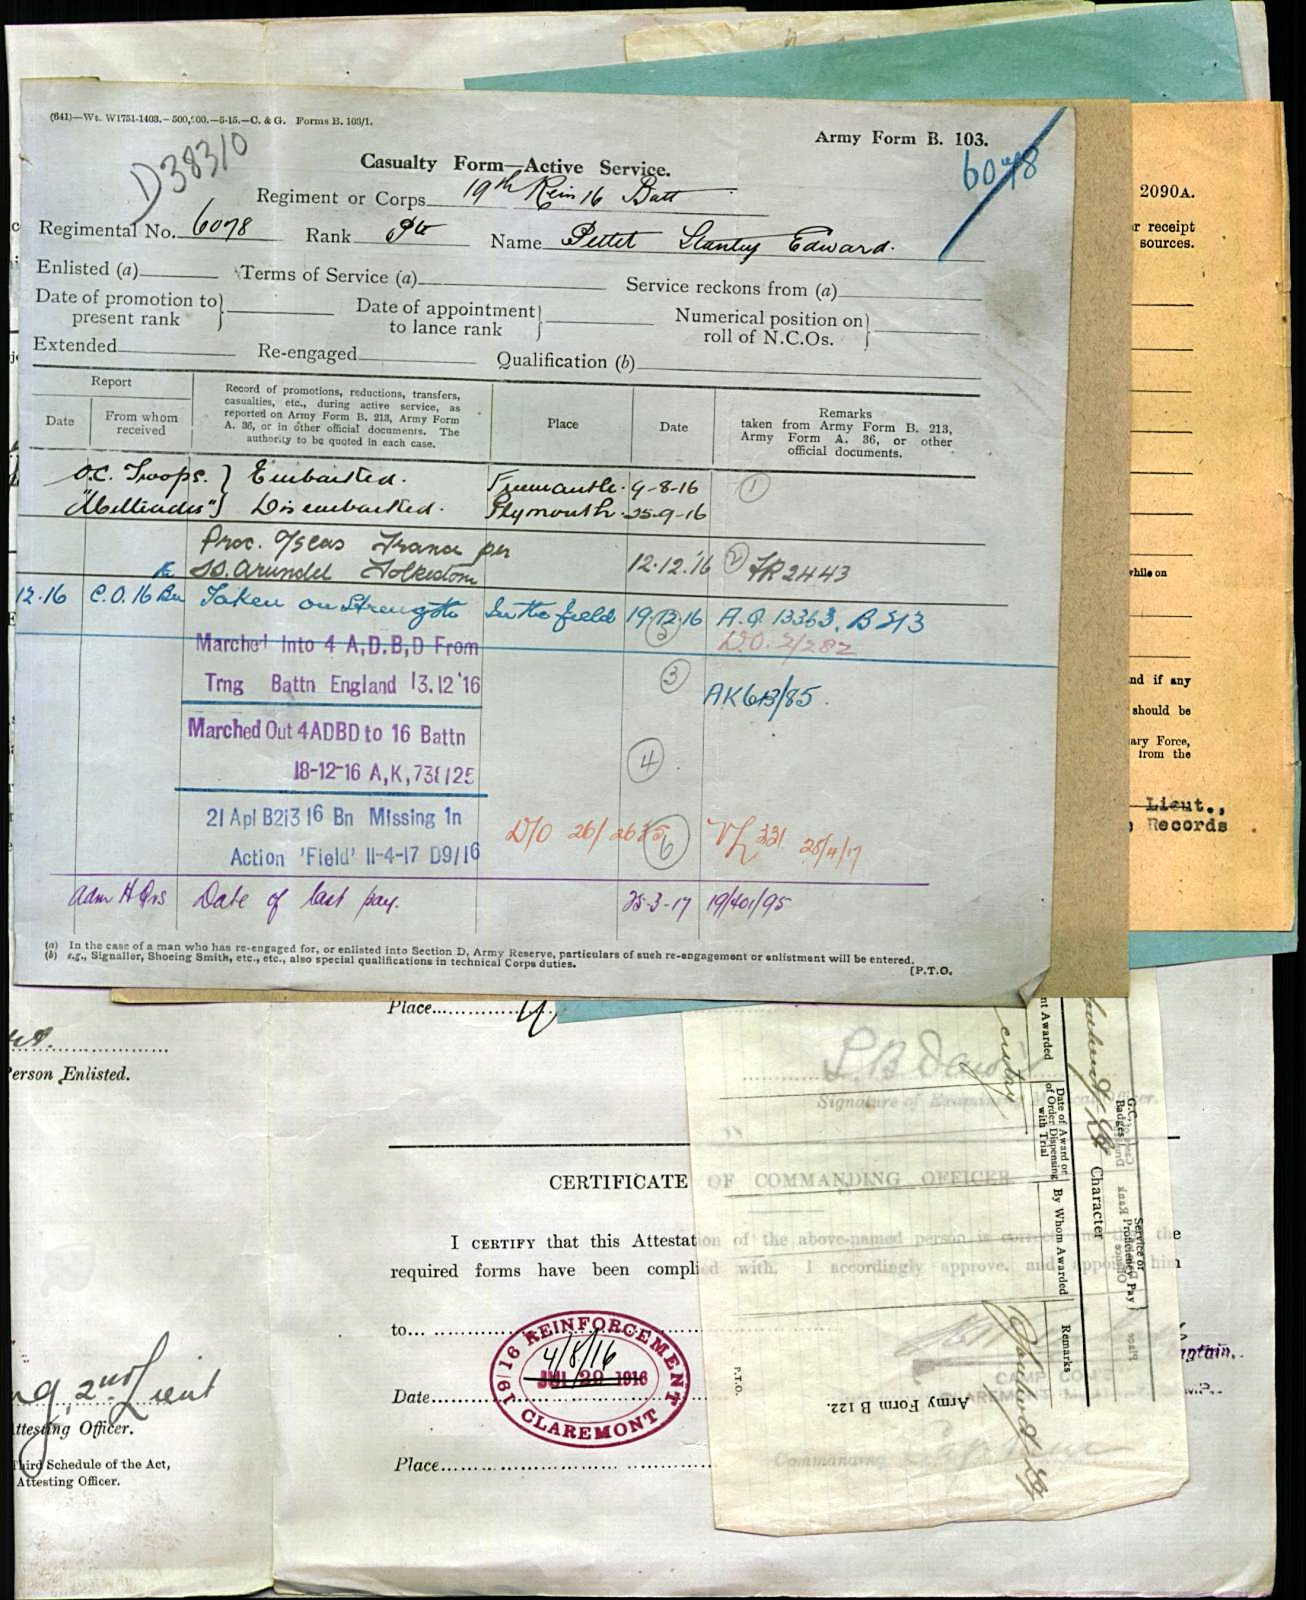 (641)—Wt. W1751-1403.—500,000.—5-15.—C. & G. Forms B. 103/1.
Army Form B. 103.
D38310
6078
Casualty Form—Active Service.
Regiment or Corps 19th Rein 16 Batt
Regimental No. 6078 Rank Pte Name Pettet Stanley Edward.
Enlisted (a) Terms of Service (a) Service reckons from (a)
Date of promotion to present rank } Date of appointment to lance rank } Numerical position on roll of N.C.Os. }
Extended Re-engaged Qualification (b)
Report
Date
From whom received
Record of promotions, reductions, transfers,
casualties, etc., during active service, as
reported on Army Form B. 213, Army Form
A. 36, or in other official documents. The
authority to be quoted in each case.
Place
Date
Remarks
taken from Army Form B. 213,
Army Form A. 36, or other
official documents.
O.C. Troops. } Embarked. Fremantle. 9-8-16 1
"Miltiades" } Disembarked. Plymouth. 25-9-16
Proc. O/seas France per
SS. Arundel Folkestone 12.12.16 2 FR2443
12.16 C.O. 16 Bn Taken on Strength In the field 19.12.16 A.Q. 13363. B213
5 D.O. 2/282
Marched Into 4 A,D.B,D From
Trng Battn England 13.12'16 3 AK613/85.
Marched Out 4ADBD to 16 Battn
18-12-16 A,K,738/25 4
21 Apl B213 16 Bn Missing In
Action 'Field' 11-4-17 D9/16 D/O 26/2635 6 331 25/4/17
Adm H Qrs Date of last pay. 25-3-17 19/401/95
(a) In the case of a man who has re-engaged for, or enlisted into Section D, Army Reserve, particulars of such re-engagement or enlistment will be entered.
(b) e.g., Signaller, Shoeing Smith, etc., etc., also special qualifications in technical Corps duties.
[P.T.O.
2090A.
or receipt
sources.
while on
nd if any
should be
ary Force,
from the
Lieut.,
Records
Place
erson Enlisted.
2nd Lieut
ttesting Officer.
hird Schedule of the Act,
Attesting Officer.
Signature of Examining Medical Officer.
CERTIFICATE OF COMMANDING OFFICER.
I CERTIFY that this Attestation of the above-named person is correct
required forms have been complied with. I accordingly approve, and appoint him
to
REINFORCEMENT
19/16
4/8/16
JUL 29 1916
CLAREMONT
Date
Place
Captain.
Commanding
nt Awarded
Date of Award or
of Order Dispensing
with Trial
By Whom Awarded
Remarks
G.C.
Badges
Character
Service or
Proficiency Pay
P.T.O.
Army Form B 122.